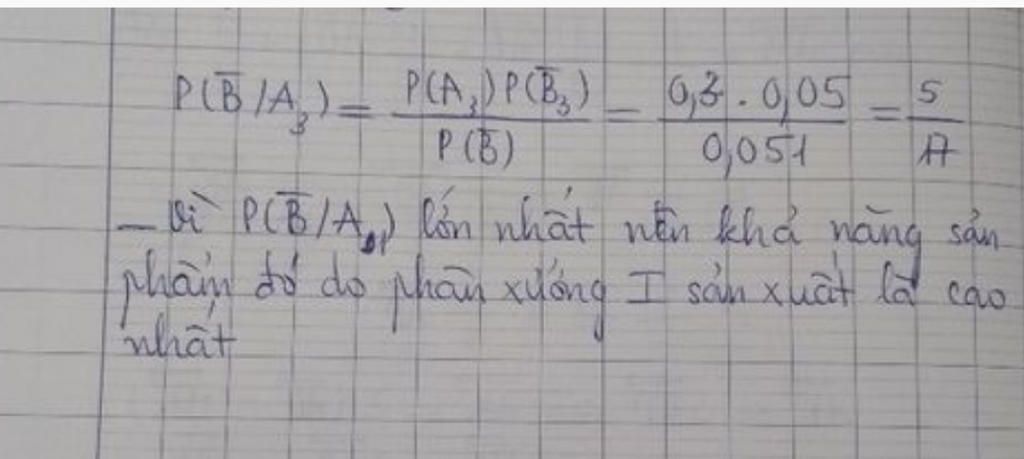 P(B̅/A₃) = P(A₃)P(B̅₃) / P(B̅) = 0,3 . 0,05 / 0,051 = 5 / 17
– Vì P(B̅/A₁) lớn nhất nên khả năng sản
phẩm đó do phân xưởng I sản xuất là cao
nhất